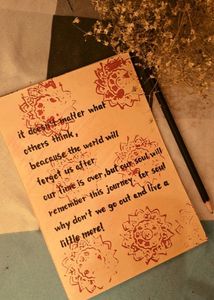 it doesn't matter what
others think,
because the world will
forget us after
our time is over, but our soul will
remember this journey, for soul
why don't we go out and live a
little more!